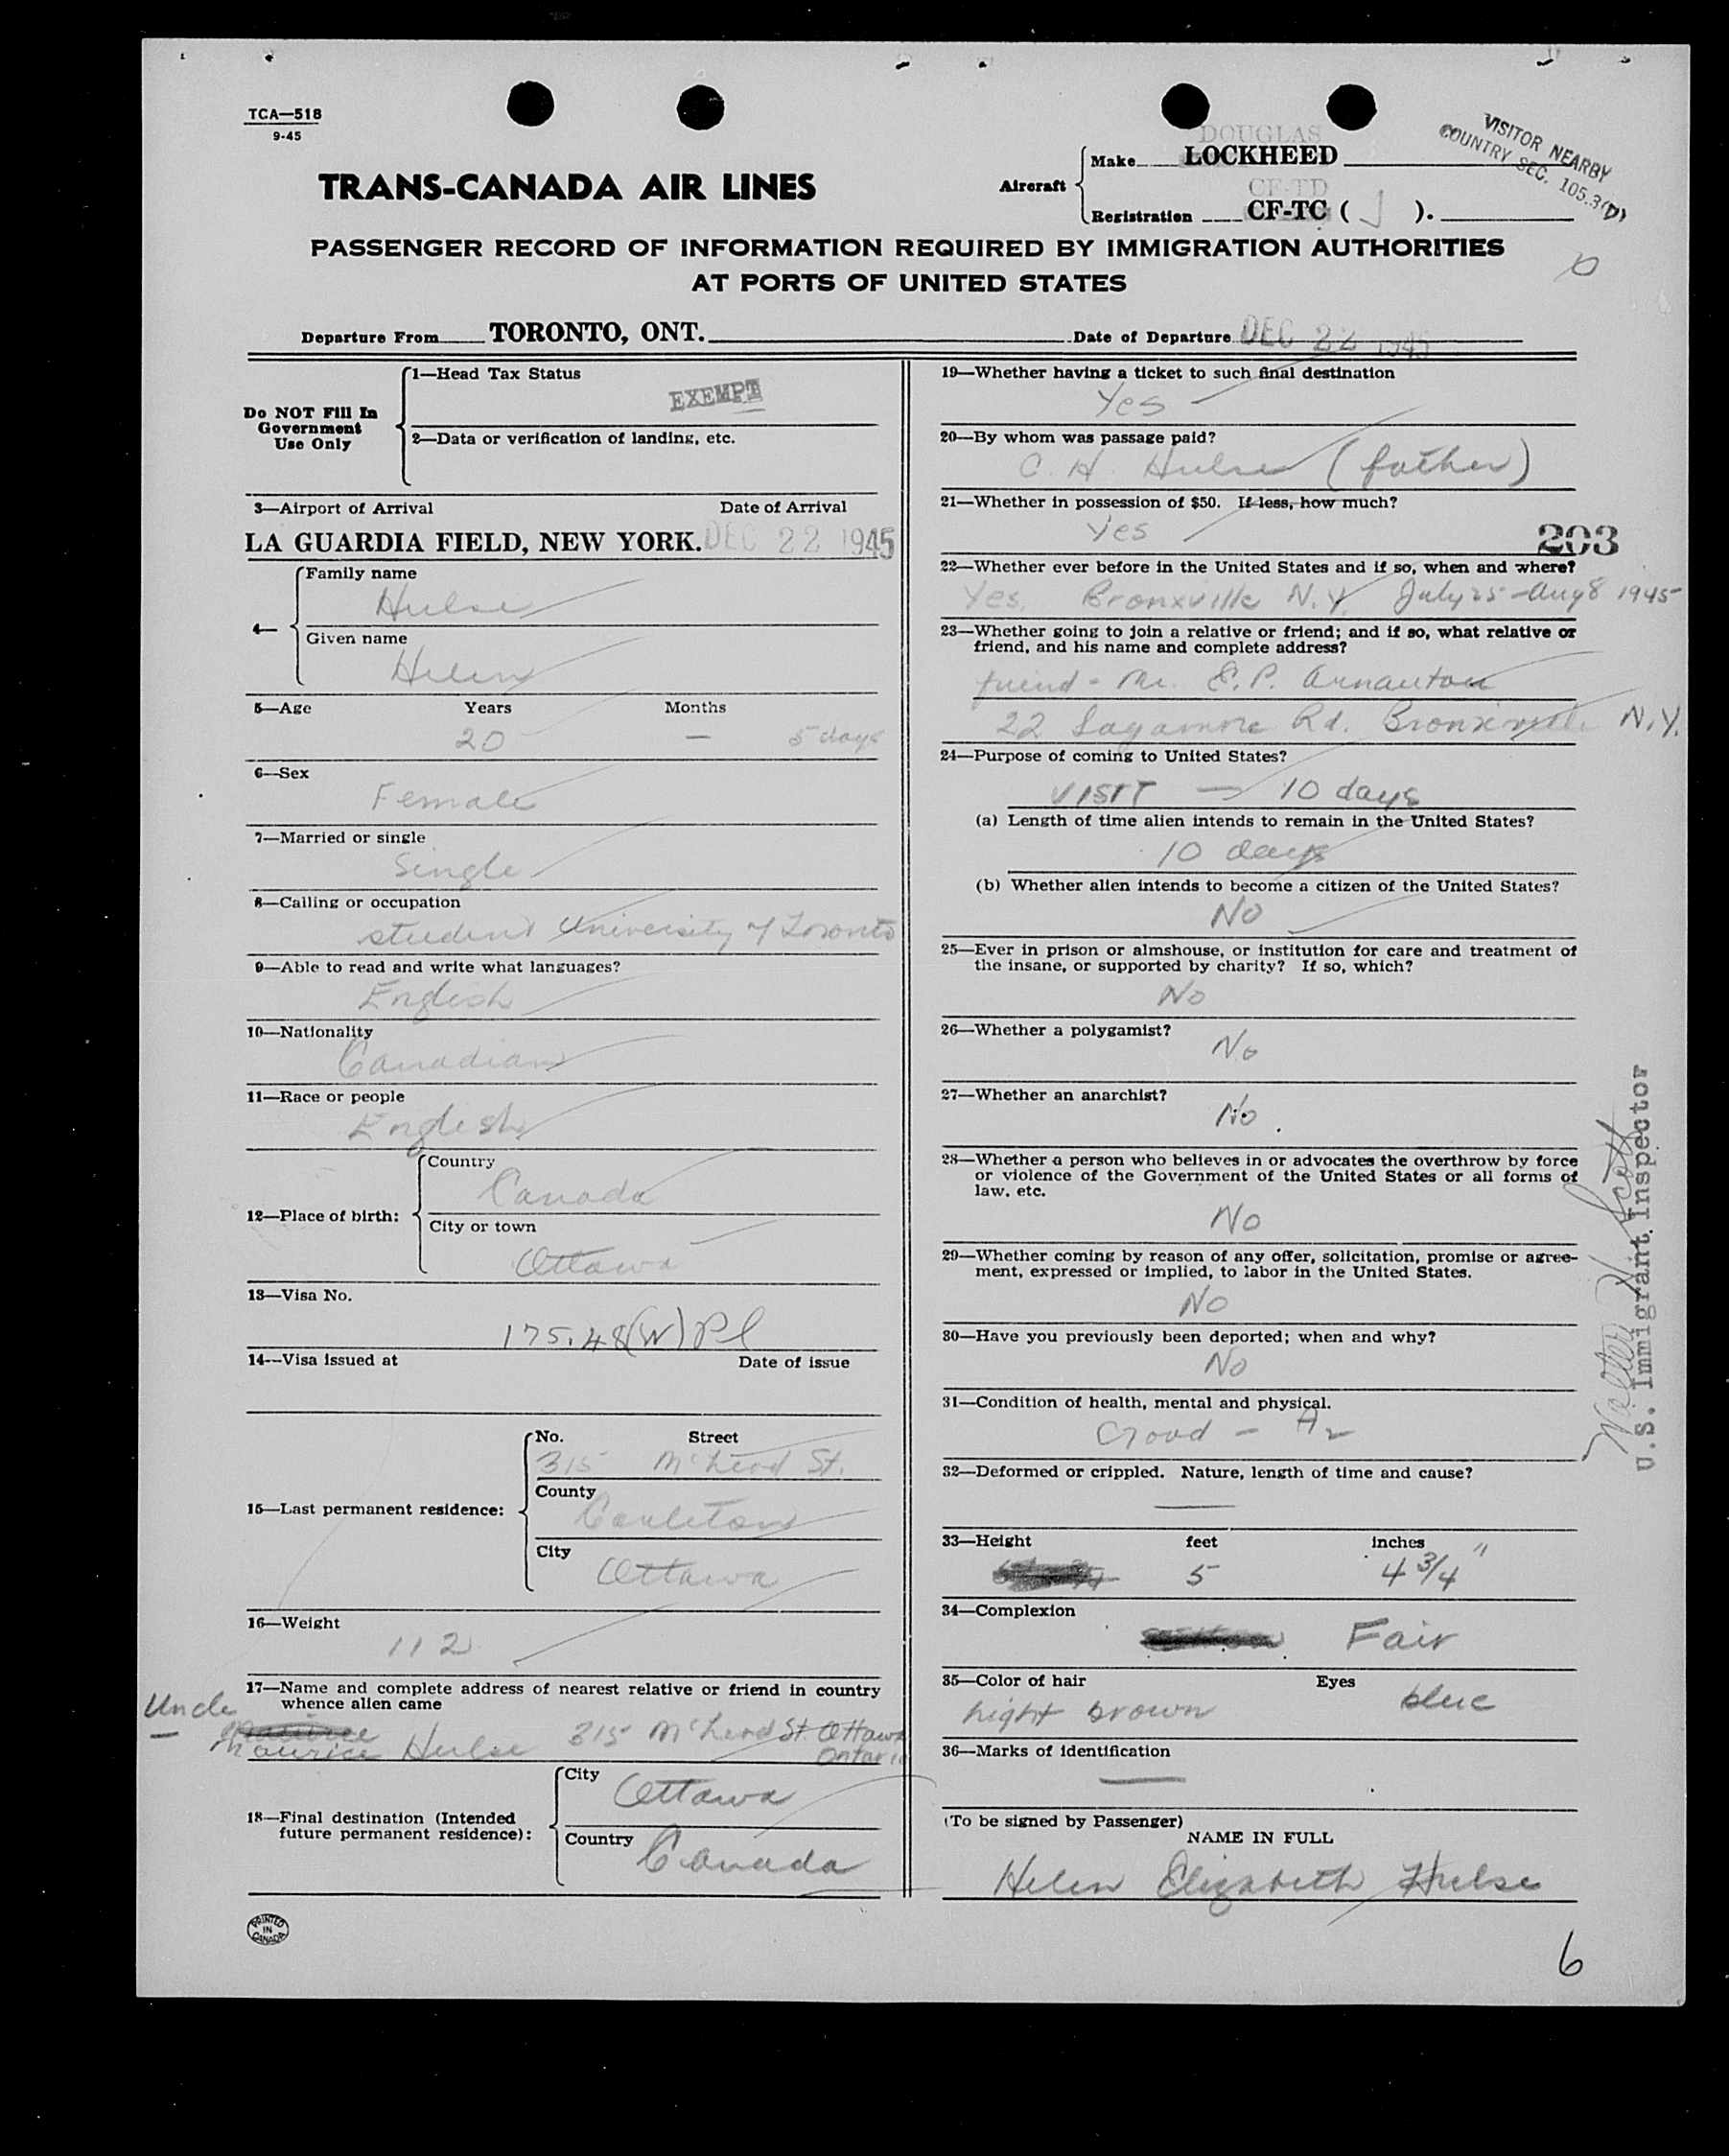 TCA—518
9-45
VISITOR NEARBY
COUNTRY SEC. 105.3(D)
TRANS-CANADA AIR LINES
Aircraft
DOUGLAS
Make LOCKHEED
CF-TD
Registration CF-TC ( J ).
PASSENGER RECORD OF INFORMATION REQUIRED BY IMMIGRATION AUTHORITIES
AT PORTS OF UNITED STATES
Departure From TORONTO, ONT. Date of Departure DEC 22 1945
Do NOT Fill In
Government
Use Only
1—Head Tax Status
EXEMPT
2—Data or verification of landing, etc.
3—Airport of Arrival Date of Arrival
LA GUARDIA FIELD, NEW YORK. DEC 22 1945
4—
Family name
Hulse
Given name
Helen
5—Age Years Months
20 — 5 days
6—Sex
Female
7—Married or single
Single
8—Calling or occupation
student University of Toronto
9—Able to read and write what languages?
English
10—Nationality
Canadian
11—Race or people
English
12—Place of birth:
Country
Canada
City or town
Ottawa
13—Visa No.
175.48(W)Pl
14—Visa issued at Date of issue
15—Last permanent residence:
No. Street
315 McLeod St.
County
Carleton
City
Ottawa
16—Weight
112
17—Name and complete address of nearest relative or friend in country
whence alien came
Uncle
— Maurice Hulse 315 McLeod St. Ottawa
Ontario
18—Final destination (Intended
future permanent residence):
City
Ottawa
Country
Canada
PRINTED
IN
CANADA
19—Whether having a ticket to such final destination
Yes
20—By whom was passage paid?
C. H. Hulse (father)
21—Whether in possession of $50. If less, how much?
Yes
203
22—Whether ever before in the United States and if so, when and where?
Yes. Bronxville N.Y. July 25-Aug 8 1945
23—Whether going to join a relative or friend; and if so, what relative or
friend, and his name and complete address?
friend - Mr. E.P.
22 Sagamore Rd. Bronxville N.Y.
24—Purpose of coming to United States?
VISIT — 10 days
(a) Length of time alien intends to remain in the United States?
10 days
(b) Whether alien intends to become a citizen of the United States?
No
25—Ever in prison or almshouse, or institution for care and treatment of
the insane, or supported by charity? If so, which?
No
26—Whether a polygamist?
No
27—Whether an anarchist?
No.
28—Whether a person who believes in or advocates the overthrow by force
or violence of the Government of the United States or all forms of
law, etc.
No
29—Whether coming by reason of any offer, solicitation, promise or agree-
ment, expressed or implied, to labor in the United States.
No
30—Have you previously been deported; when and why?
No
31—Condition of health, mental and physical.
Good —
32—Deformed or crippled. Nature, length of time and cause?
—
33—Height feet inches
5 4 3/4"
34—Complexion
Fair
35—Color of hair Eyes
light brown blue
36—Marks of identification
—
(To be signed by Passenger)
NAME IN FULL
Helen Elizabeth Hulse
Scott
U.S. Immigrant Inspector
6